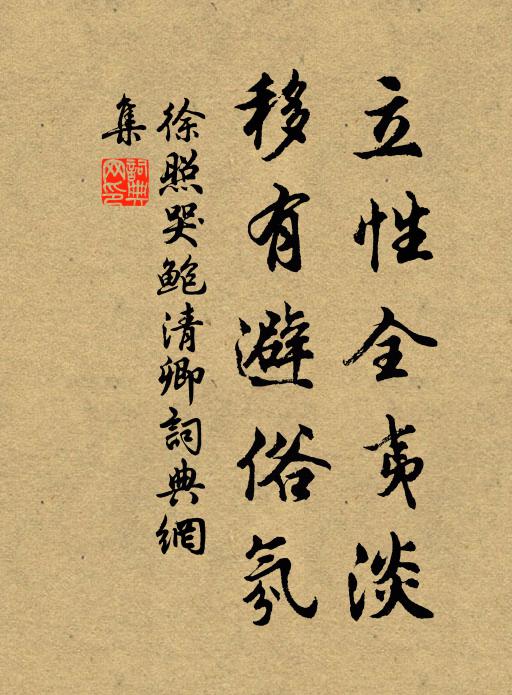 立性全夷淡
移有避俗氛
徐照哭鲍清卿詞典網
集
詞典网印